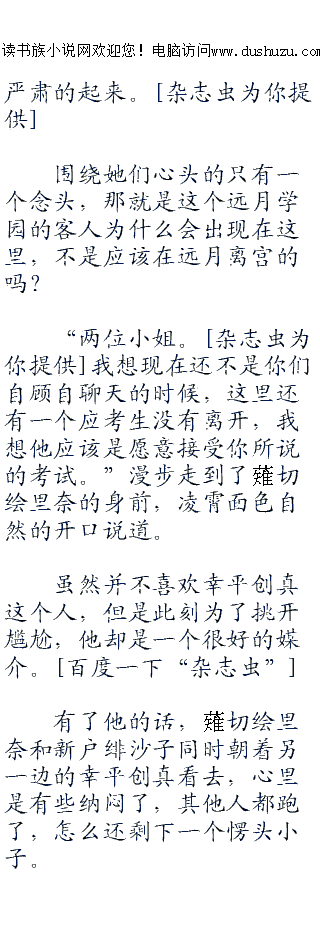 读书族小说网欢迎您！电脑访问www.dushuzu.com
严肃的起来。[杂志虫为你提
供]
围绕她们心头的只有一
个念头，那就是这个远月学
园的客人为什么会出现在这
里，不是应该在远月离宫的
吗？
“两位小姐。[杂志虫为
你提供]我想现在还不是你们
自顾自聊天的时候，这里还
有一个应考生没有离开，我
想他应该是愿意接受你所说
的考试。”漫步走到了薙切
绘里奈的身前，凌霄面色自
然的开口说道。
虽然并不喜欢幸平创真
这个人，但是此刻为了挑开
尴尬，他却是一个很好的媒
介。[百度一下“杂志虫”]
有了他的话，薙切绘里
奈和新户绯沙子同时朝着另
一边的幸平创真看去，心里
是有些纳闷了，其他人都跑
了，怎么还剩下一个愣头小
子。